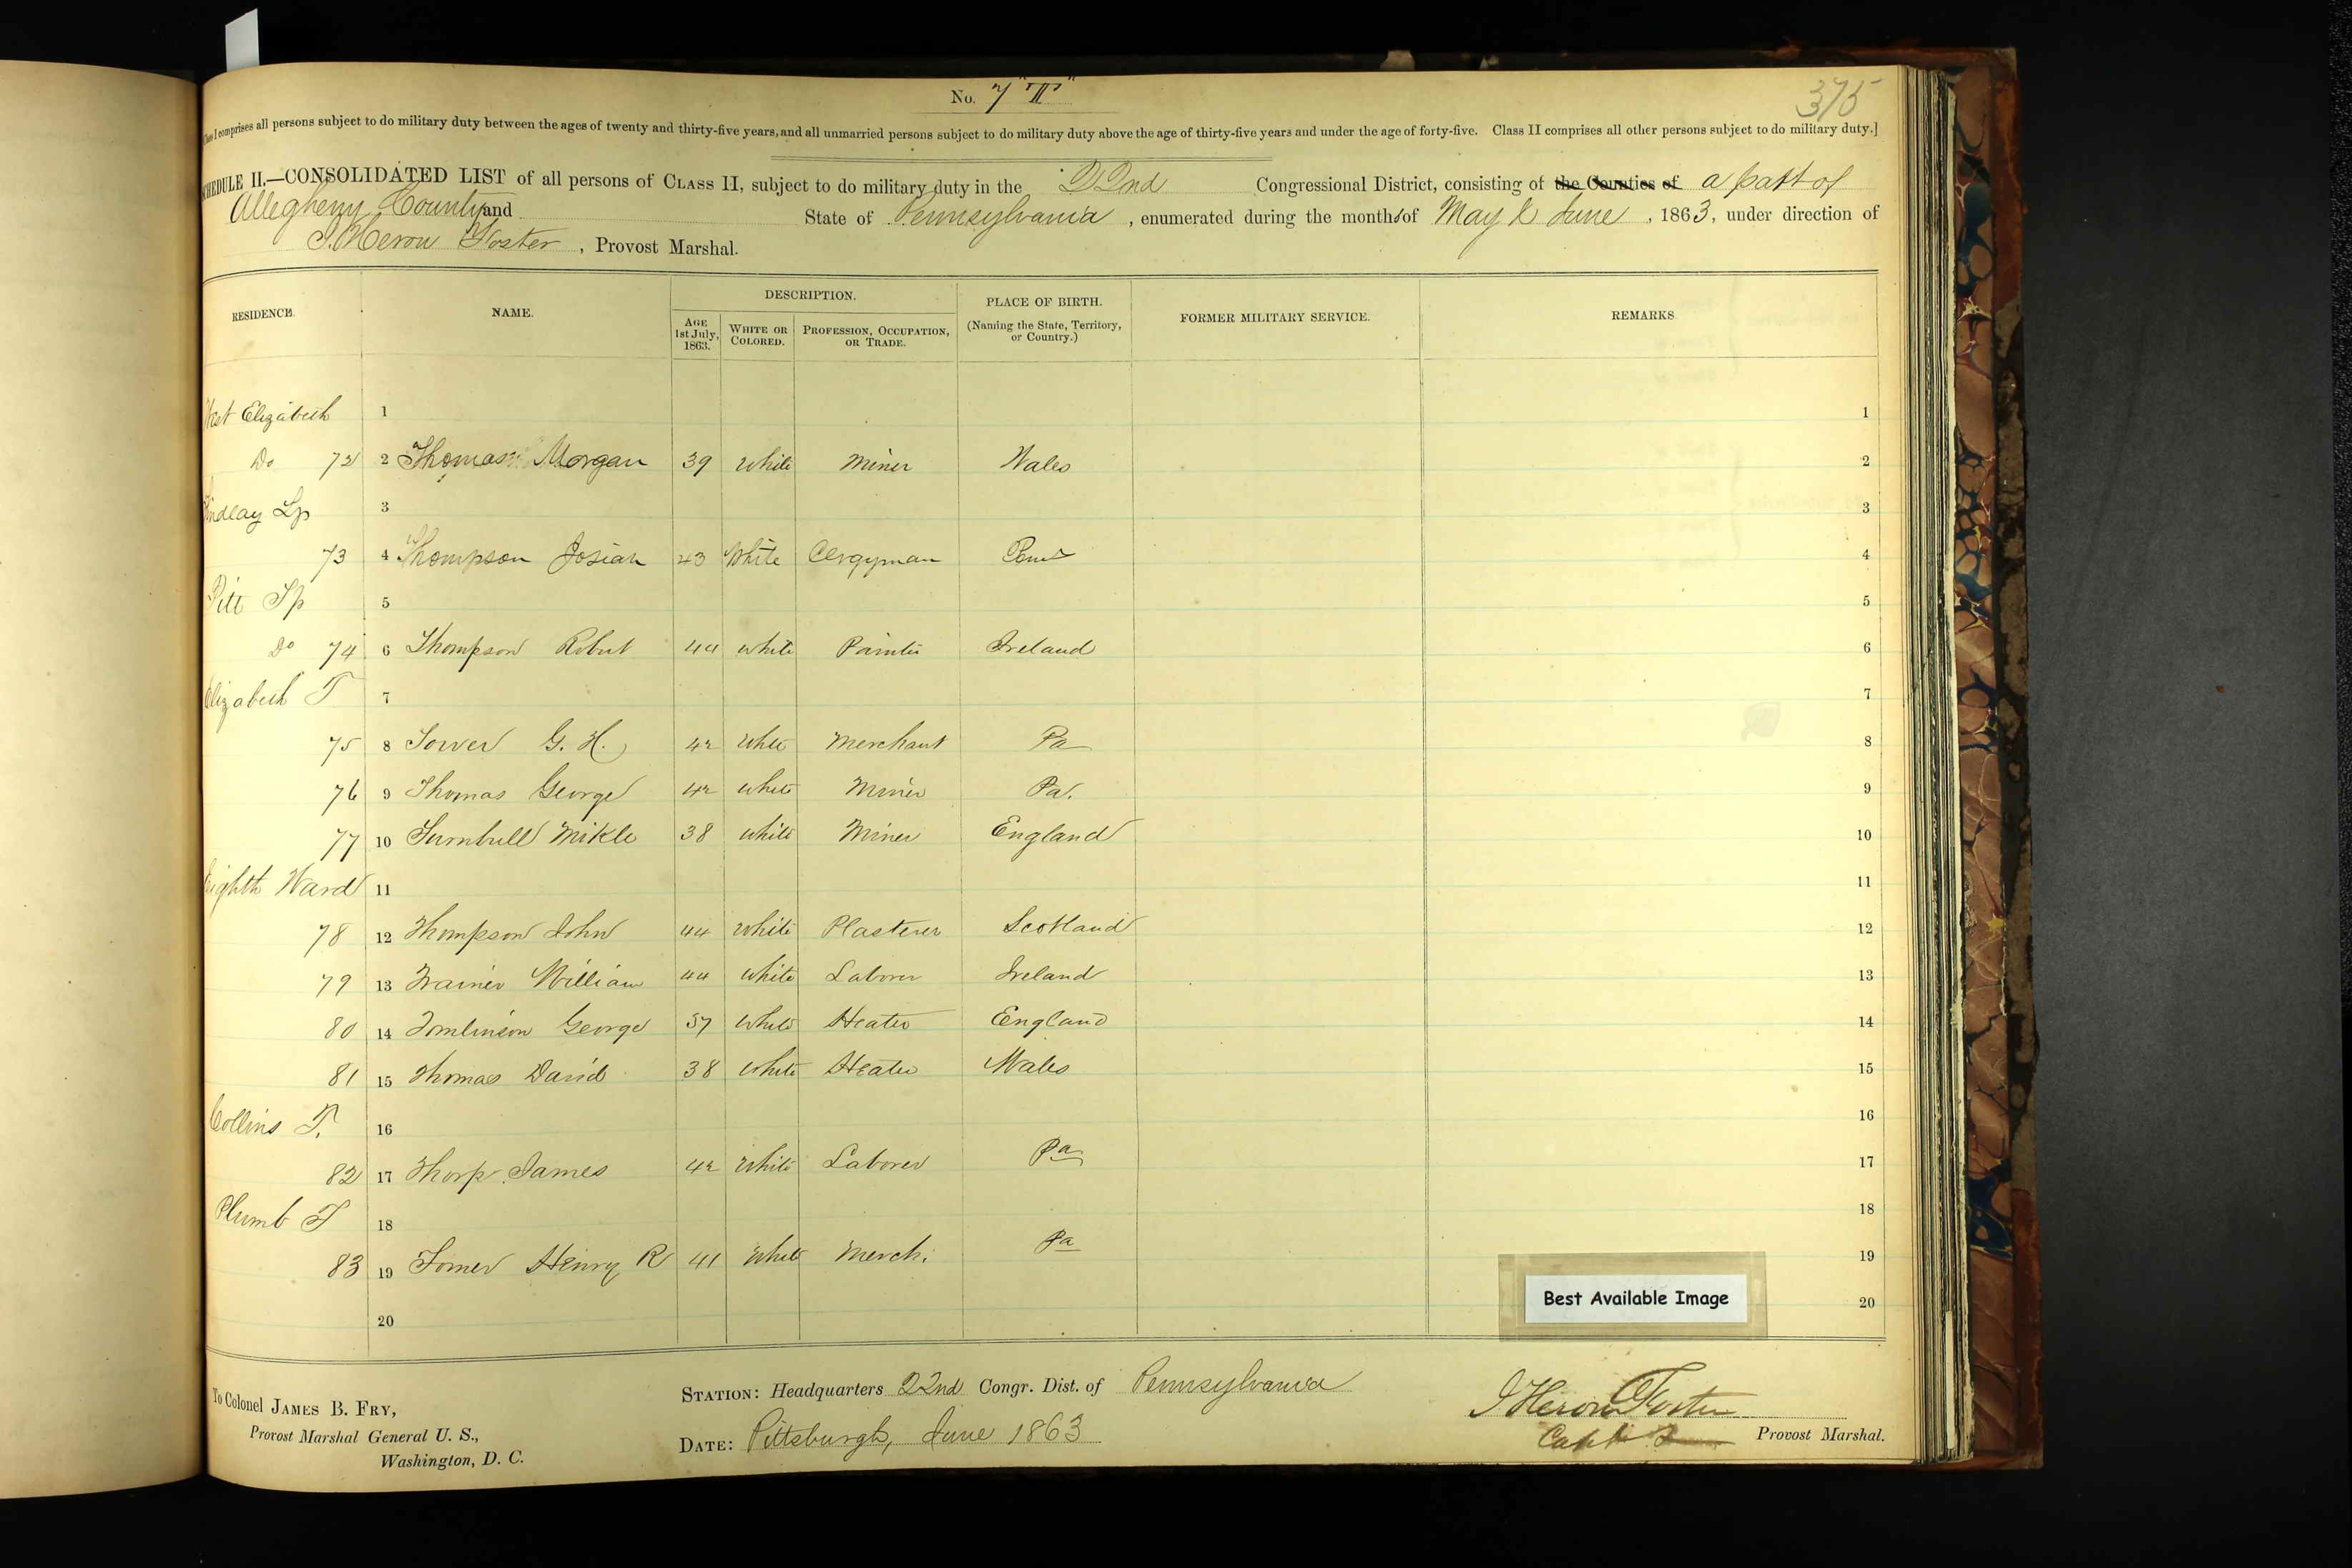 No. 7 "T"
375
Class I comprises all persons subject to do military duty between the ages of twenty and thirty-five years, and all unmarried persons subject to do military duty above the age of thirty-five years and under the age of forty-five. Class II comprises all other persons subject to do military duty.]
SCHEDULE II.—CONSOLIDATED LIST of all persons of CLASS II, subject to do military duty in the 22nd Congressional District, consisting of the Counties of a part of
Allegheny County and State of Pennsylvania, enumerated during the months of May & June, 1863, under direction of
J. Heron Foster, Provost Marshal.
RESIDENCE. NAME. DESCRIPTION. PLACE OF BIRTH. FORMER MILITARY SERVICE. REMARKS
AGE 1st July, 1863. WHITE OR COLORED. PROFESSION, OCCUPATION, OR TRADE. (Naming the State, Territory, or Country.)
West Elizabeth 1 1
Do 72 2 Thomas Morgan 39 White Miner Wales 2
Findlay Tp 3 3
73 4 Thompson Josiah 43 White Clergyman Penna 4
Pitt Tp 5 5
Do 74 6 Thompson Robert 44 white Painter Ireland 6
Elizabeth T 7 7
75 8 Tower G. H. 42 White Merchant Pa 8
76 9 Thomas George 42 White Miner Pa. 9
77 10 Turnbull Mikle 38 white Miner England 10
Eighth Ward 11 11
78 12 Thompson John 44 White Plasterer Scotland 12
79 13 Trainer William 44 White Laborer Ireland 13
80 14 Tomlinson George 37 White Heater England 14
81 15 Thomas David 38 White Heater Wales 15
Collins T. 16 16
82 17 Thorp James 42 White Laborer Pa 17
Plumb T 18 18
83 19 Tomer Henry R 41 White Merch. Pa 19
20 20
Best Available Image
To Colonel JAMES B. FRY,
Provost Marshal General U. S.,
Washington, D. C.
STATION: Headquarters 22nd Congr. Dist. of Pennsylvania
DATE: Pittsburgh, June 1863
J Heron Foster
Capt & Provost Marshal.